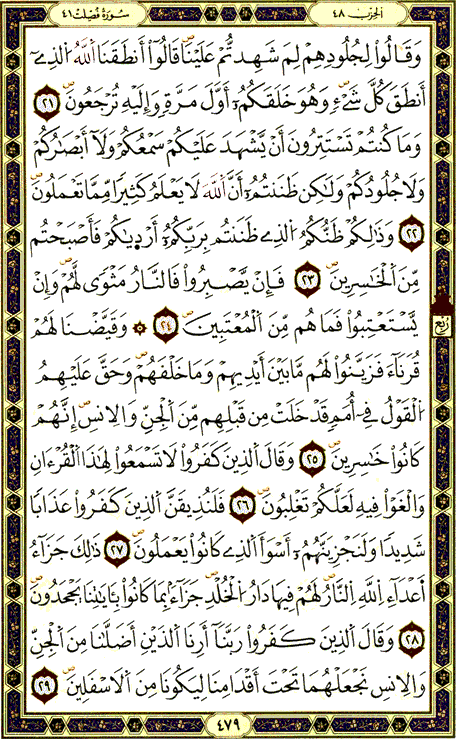 الحزب ٤٨
سورة فصلت ٤١
وَقَالُواْ لِجُلُودِهِمْ لِمَ شَهِدتُّمْ عَلَيْنَاۖ قَالُوٓاْ أَنطَقَنَا اَللَّهُ اُلذِےٓ
أَنطَقَ كُلَّ شَےْءٖۖ وَهُوَ خَلَقَكُمُۥٓ أَوَّلَ مَرَّةٖ وَإِلَيْهِ تُرْجَعُونَۖ ٢١
وَمَا كُنتُمْ تَسْتَتِرُونَ أَنْ يَّشْهَدَ عَلَيْكُمْ سَمْعُكُمْ وَلَآ أَبْصَٰرُكُمْ
وَلَا جُلُودُكُمْ وَلَٰكِن ظَنَنتُمُۥٓ أَنَّ اَللَّهَ لَا يَعْلَمُ كَثِيراٗ مِّمَّا تَعْمَلُونَۖ
٢٢ وَذَٰلِكُمْ ظَنُّكُمُ اُلذِے ظَنَنتُم بِرَبِّكُمُۥٓ أَرْدٜيٰكُمْ فَأَصْبَحْتُم
مِّنَ اَلْخَٰسِرِينَۖ ٢٣ فَإِنْ يَّصْبِرُواْ فَالنَّارُ مَثْوىٗ لَّهُمْۖ وَإِنْ
يَّسْتَعْتِبُواْ فَمَا هُم مِّنَ اَلْمُعْتَبِينَۖ ٢٤ ۞ وَقَيَّضْنَا لَهُمْ
رُبُع
قُرَنَآءَ فَزَيَّنُواْ لَهُم مَّا بَيْنَ أَيْدِيهِمْ وَمَا خَلْفَهُمْۖ وَحَقَّ عَلَيْهِمُ
اُلْقَوْلُ فِےٓ أُمَمٖ قَدْ خَلَتْ مِن قَبْلِهِم مِّنَ اَلْجِنِّ وَالِانسِۖ إِنَّهُمْ
كَانُواْ خَٰسِرِينَۖ ٢٥ وَقَالَ اَلذِينَ كَفَرُواْ لَا تَسْمَعُواْ لِهَٰذَا اَلْقُرْءَانِ
وَالْغَوْاْ فِيهِ لَعَلَّكُمْ تَغْلِبُونَۖ ٢٦ فَلَنُذِيقَنَّ اَلذِينَ كَفَرُواْ عَذَاباٗ
شَدِيداٗ وَلَنَجْزِيَنَّهُمُۥٓ أَسْوَأَ اَلذِے كَانُواْ يَعْمَلُونَۖ ٢٧ ذَٰلِكَ جَزَآءُ
اَعْدَآءِ اِللَّهِ اِلنَّارُۖ لَهُمْ فِيهَا دَارُ اُلْخُلْدِ جَزَآءَۢ بِمَا كَانُواْ بِـَٔايَٰتِنَا يَجْحَدُونَۖ
٢٨ وَقَالَ اَلذِينَ كَفَرُواْ رَبَّنَآ أَرِنَا اَلذَيْنِ أَضَلَّٰنَا مِنَ اَلْجِنِّ
وَالِانسِ نَجْعَلْهُمَا تَحْتَ أَقْدَامِنَا لِيَكُونَا مِنَ اَلَاسْفَلِينَۖ ٢٩
٤٧٩